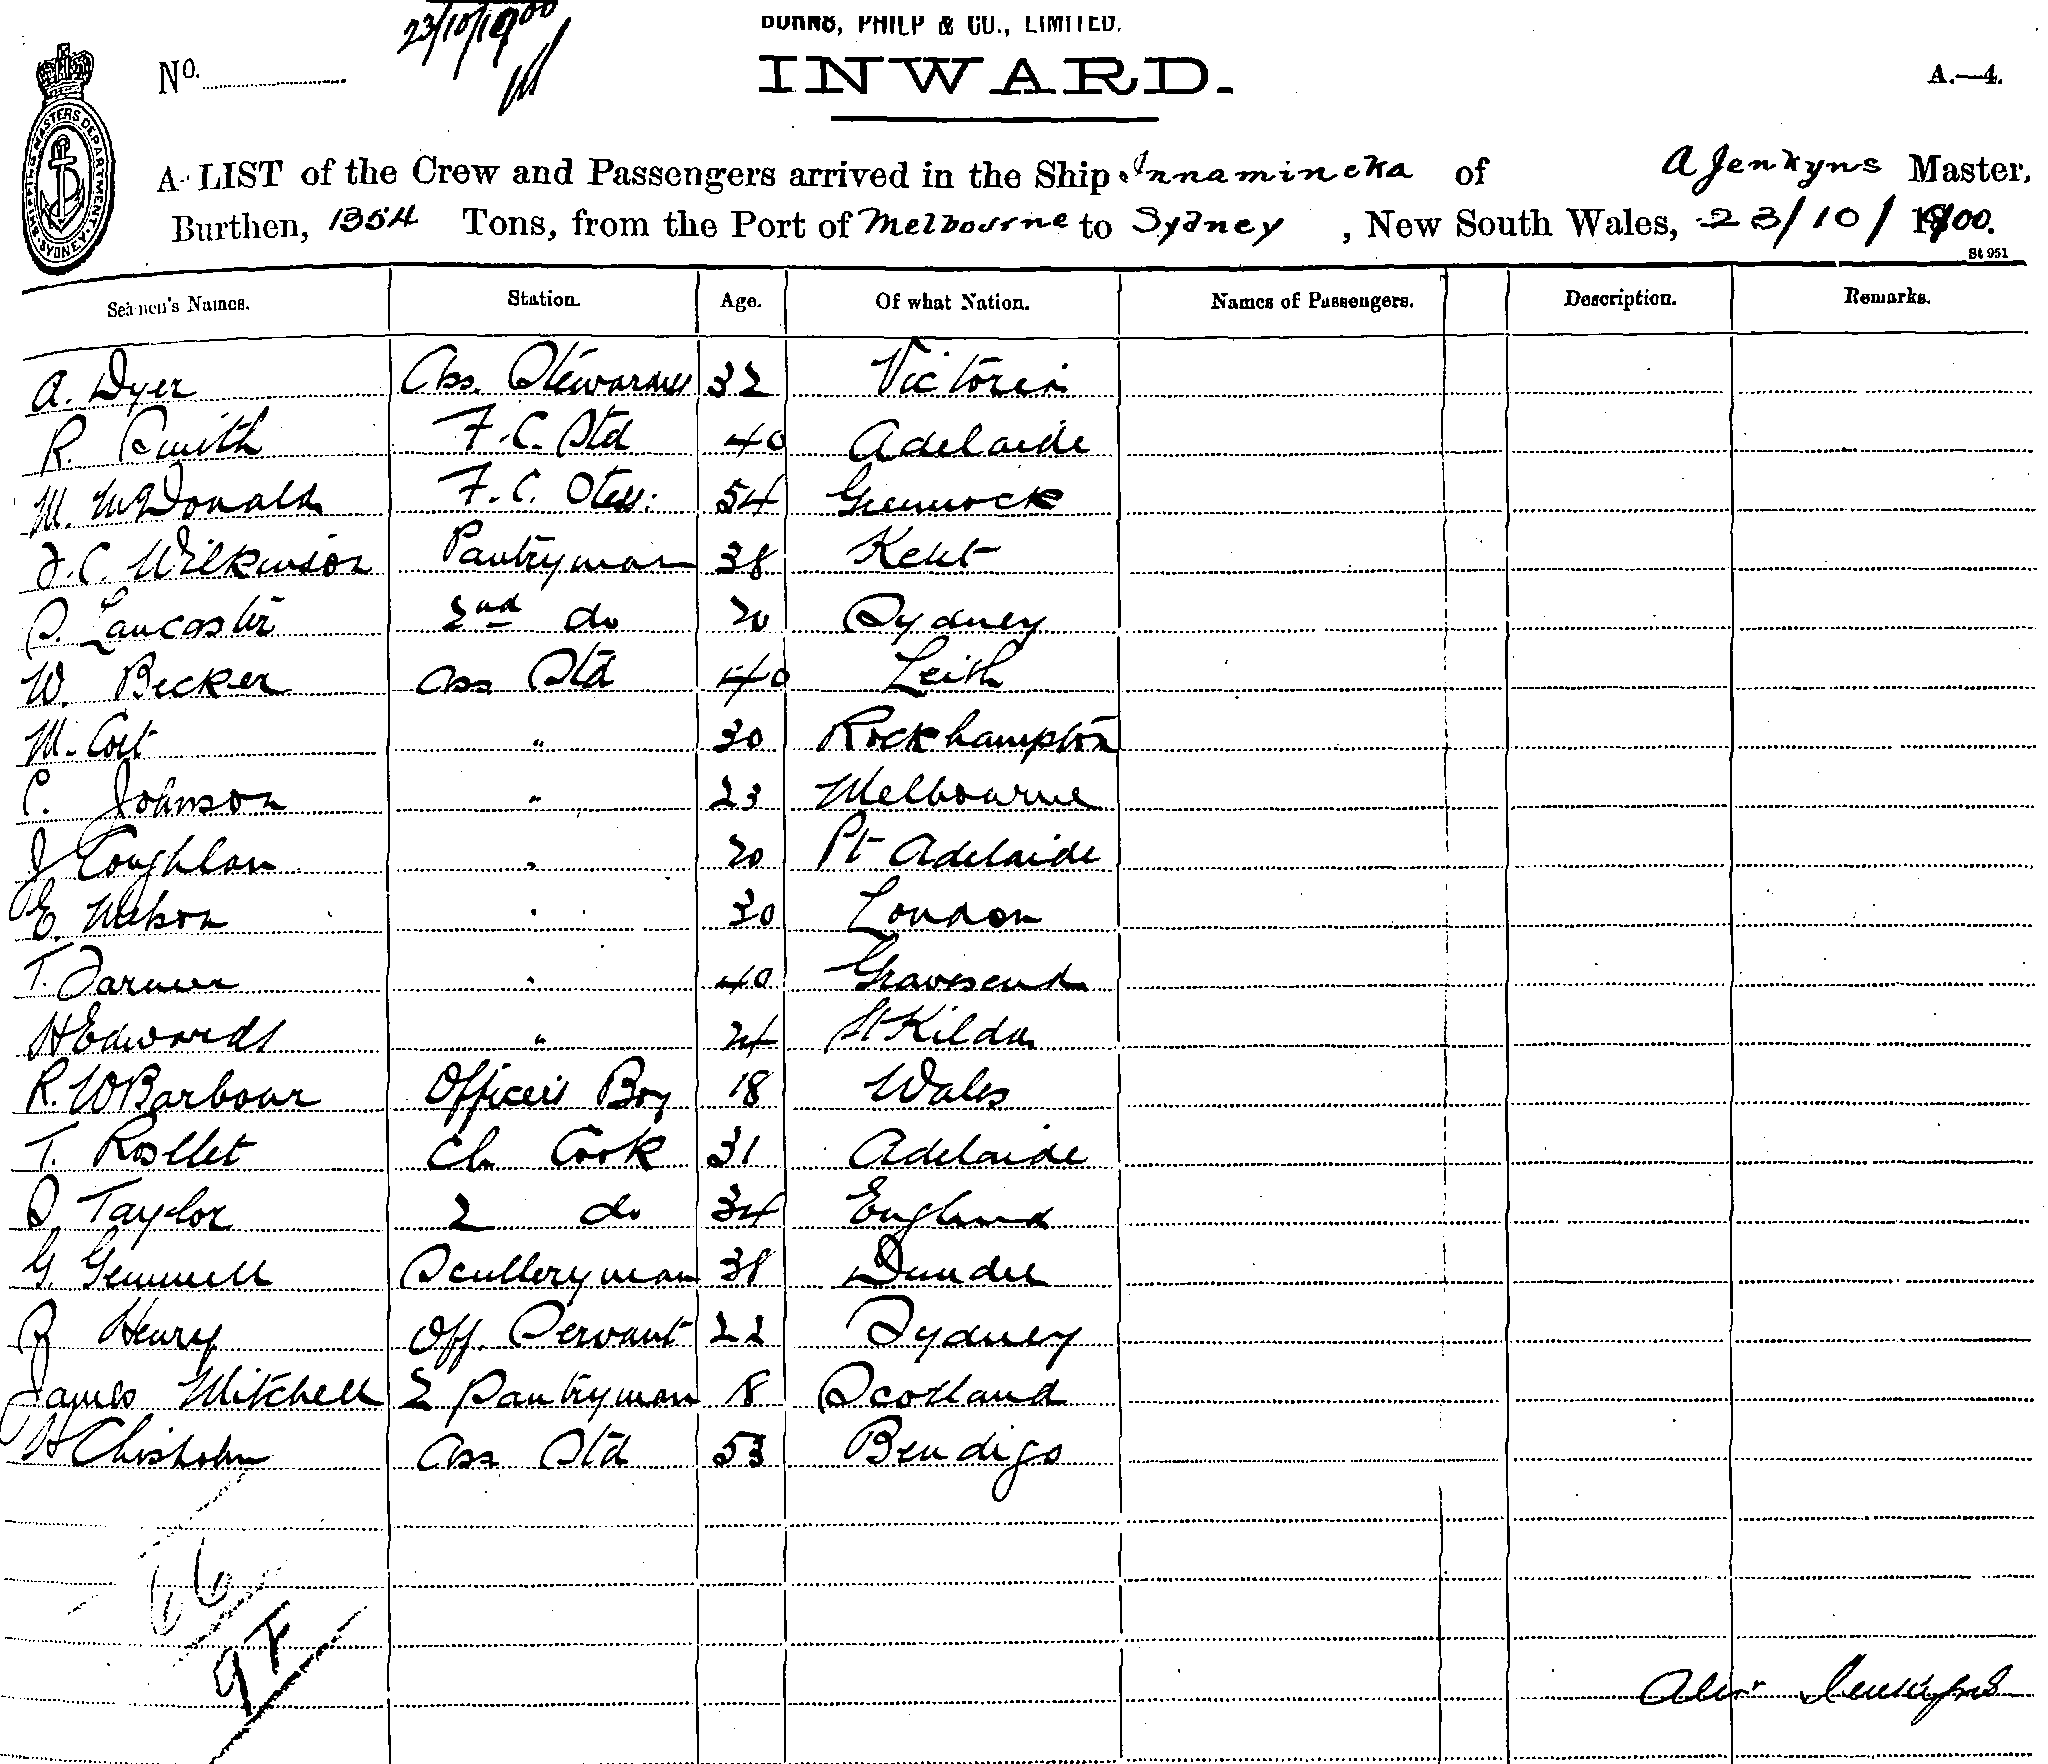 23/10/1900
BURNS, PHILP & CO., LIMITED.
No.
INWARD.
A.—4.
A LIST of the Crew and Passengers arrived in the Ship Innamincka of A Jenkyns Master,
Burthen, 1354 Tons, from the Port of Melbourne to Sydney, New South Wales, 23/10/1900.
St 951
Seamen's Names. Station. Age. Of what Nation. Names of Passengers. Description. Remarks.
A. Dyer Ass. Stewardess 32 Victoria
R. Smith F.C. Std 40 Adelaide
M. McDonald F.C. Stess. 54 Greenock
F.C. Wilkinson Pantryman 38 Kent
S. Lancaster 2nd do 20 Sydney
W. Becker Ass Std 40 Leith
M. " 30 Rockhampton
C. Johnson " 23 Melbourne
J Coughlan " 20 Pt Adelaide
E. " 30 London
T. Farmer " 40 Gravesend
H Edwards " 24 St Kilda
R. W Barbour Officer's Boy 18 Wales
T. Ch. Cook 31 Adelaide
S Taylor 2 do 34 England
G. Gemmell Sculleryman 38 Dundee
R Henry Off. Servant 22 Sydney
James Mitchell 2 Pantryman 18 Scotland
H Chisholm Ass Std 53 Bendigo
66
Alexr Jenkyns